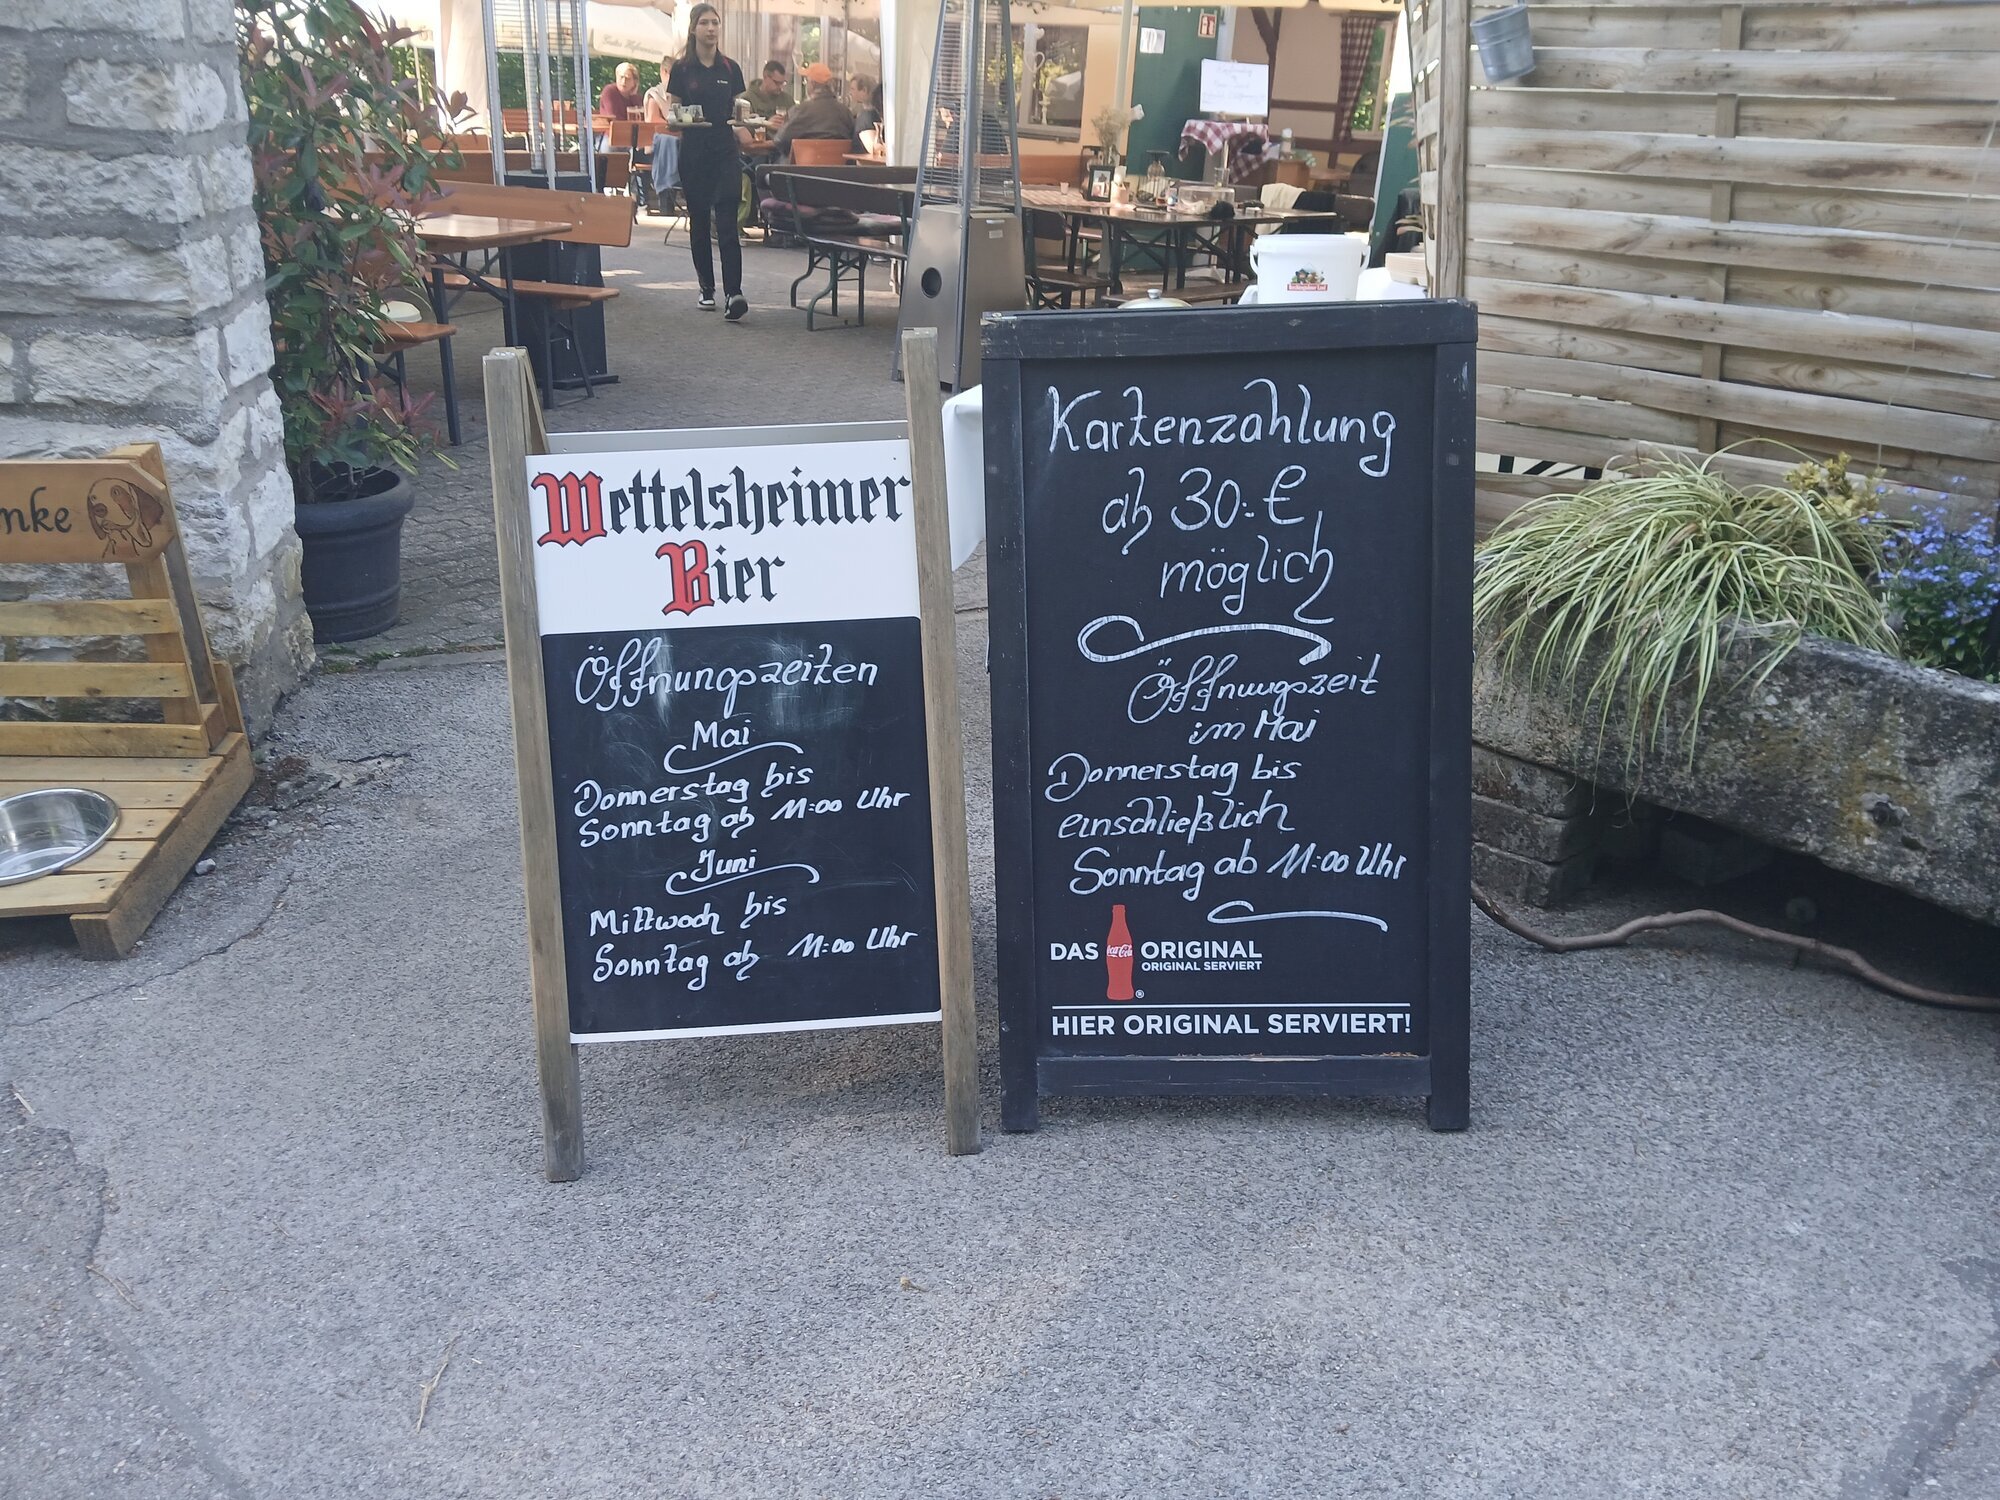 nke
Wettelsheimer
Bier
Öffnungszeiten
Mai
Donnerstag bis
Sonntag ab 11:00 Uhr
Juni
Mittwoch bis
Sonntag ab 11:00 Uhr
Kartenzahlung
ab 30.-€
möglich
Öffnungszeit
im Mai
Donnerstag bis
einschließlich
Sonntag ab 11:00 Uhr
DAS Coca-Cola ORIGINAL
ORIGINAL SERVIERT
®
HIER ORIGINAL SERVIERT!